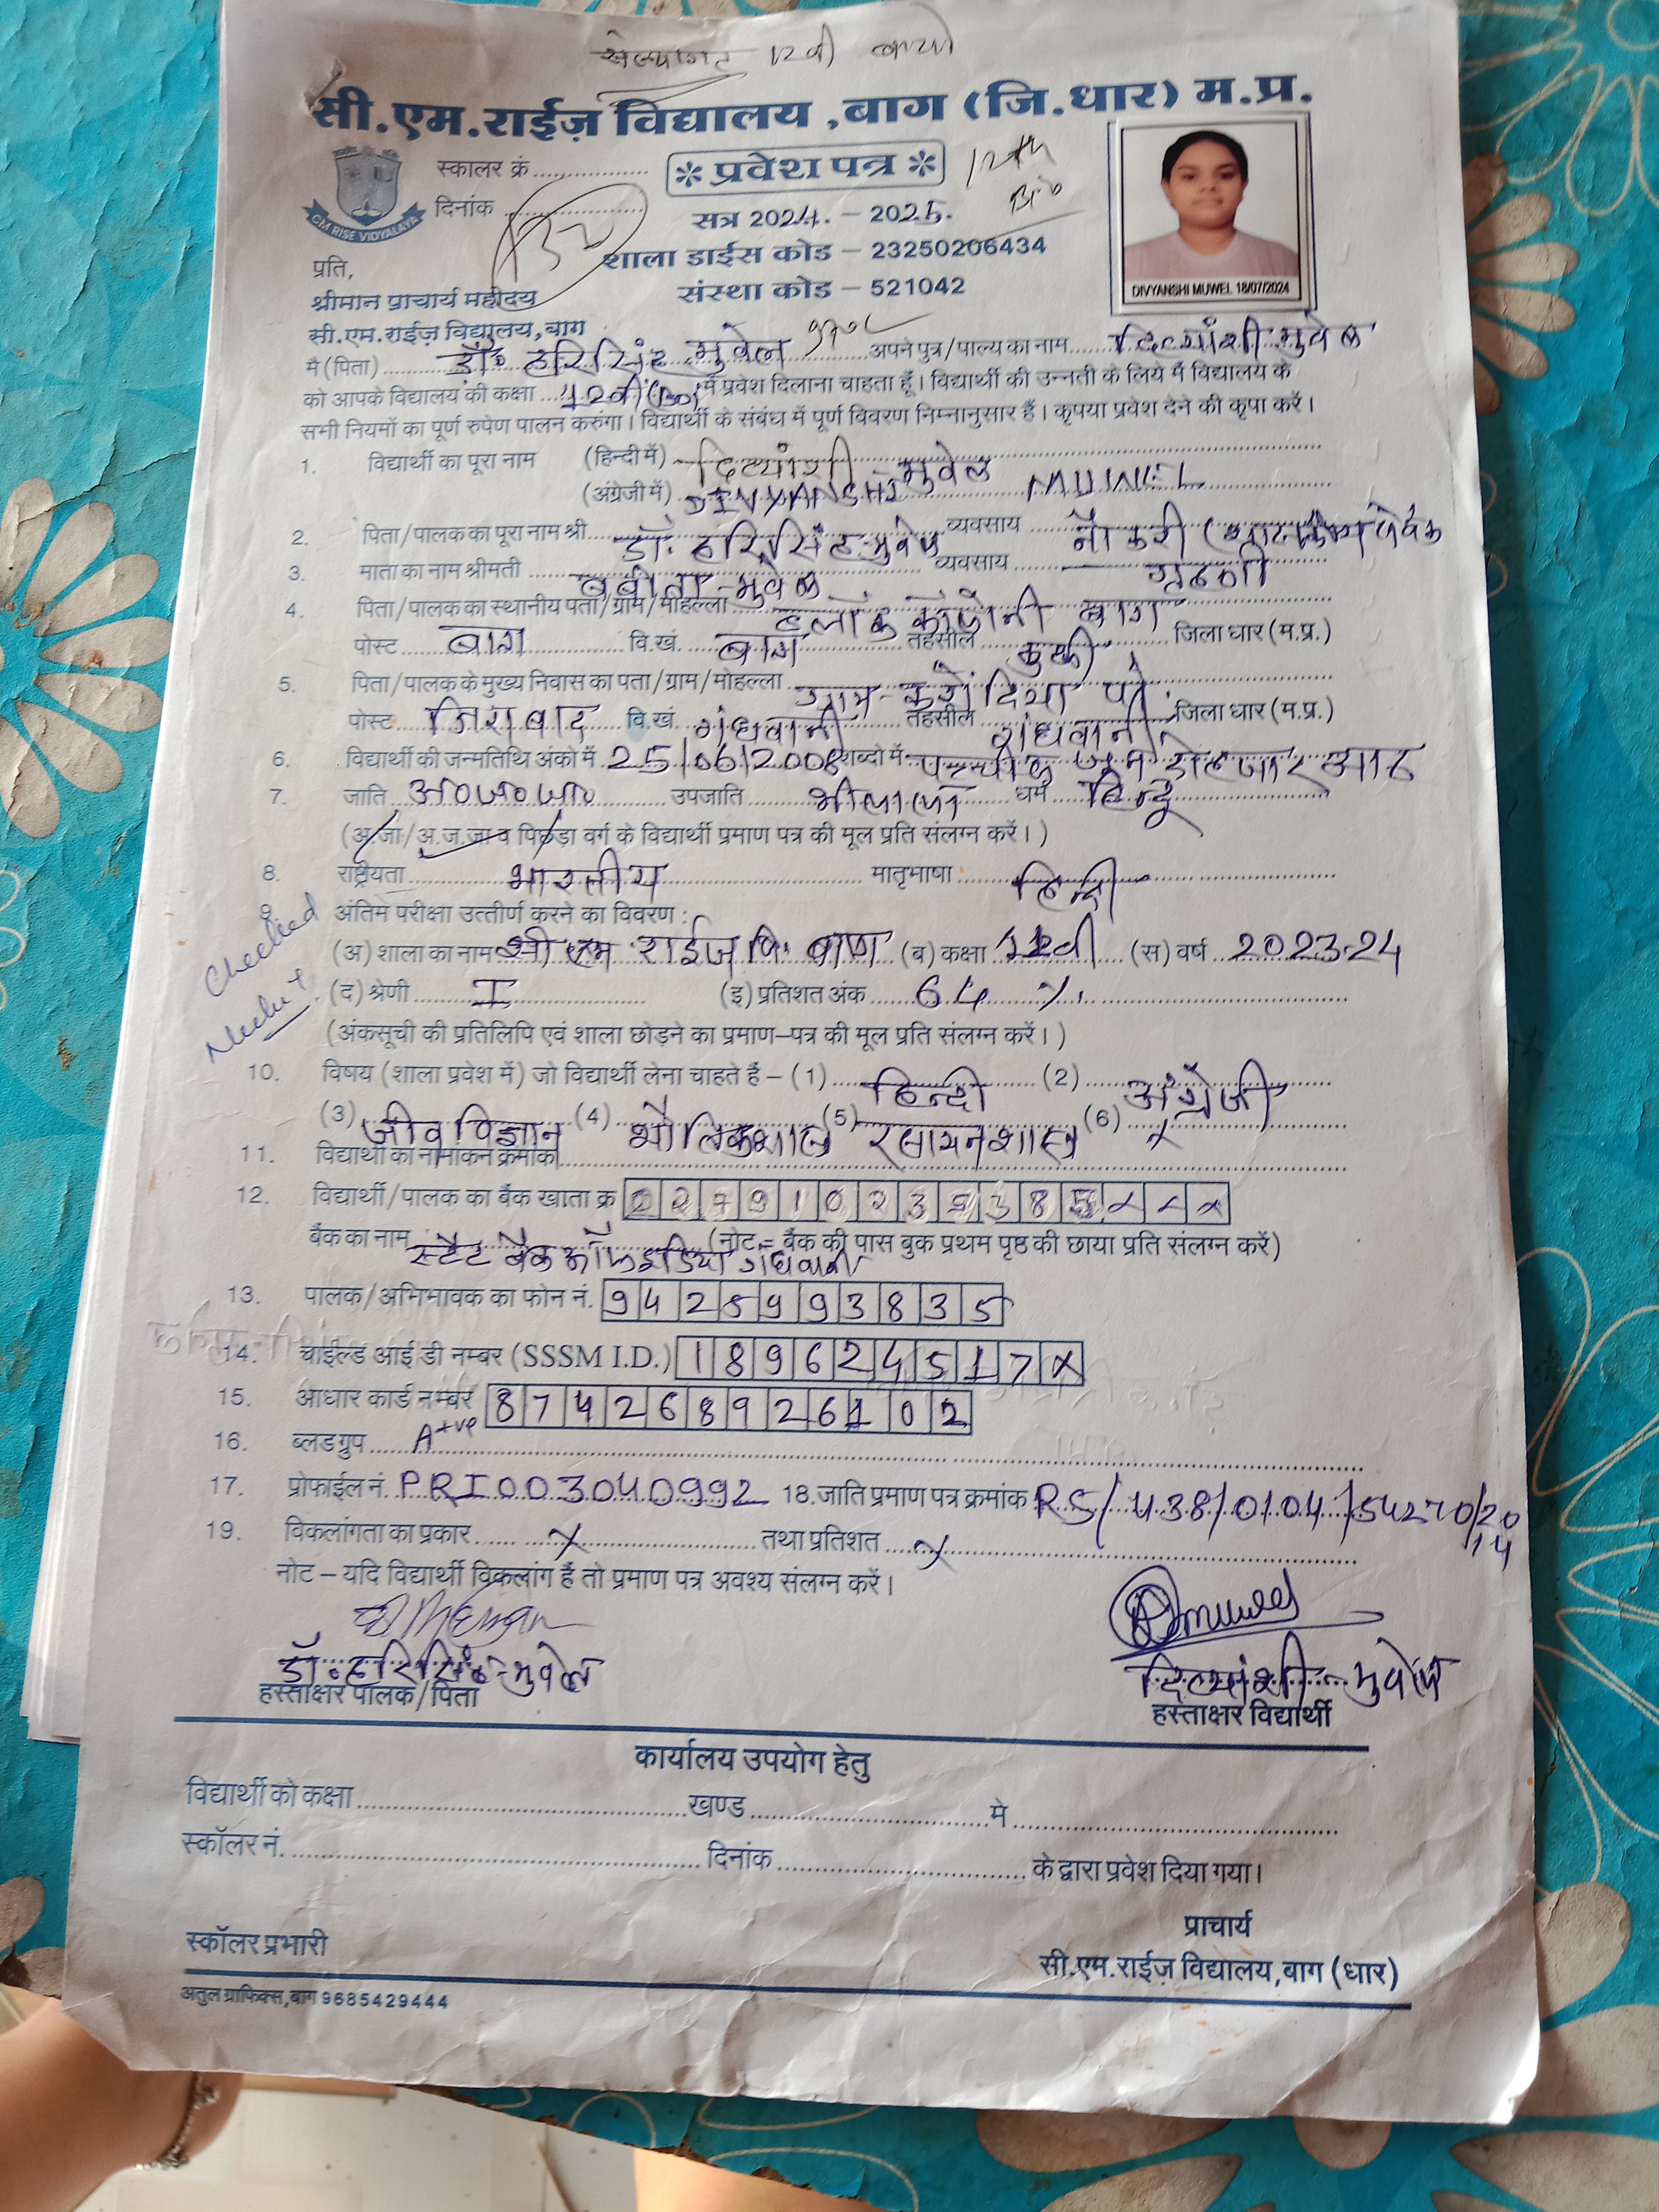 12वी बायो
सी.एम.राईज़ विद्यालय ,बाग (जि.धार) म.प्र.
स्कालर क्रं
प्रवेश पत्र
12th
Bio
CM RISE VIDYALAYA
दिनांक
सत्र 2024. – 2025.
शाला डाईस कोड – 23250206434
संस्था कोड – 521042
DIVYANSHI MUWEL 18/07/2024
प्रति,
श्रीमान प्राचार्य महोदय
सी.एम.राईज़ विद्यालय,बाग
मै (पिता) डॉ. हरिसिंह मुवेल अपने पुत्र/पाल्य का नाम दिव्यांशी मुवेल
को आपके विद्यालय की कक्षा 12वी (Bio) में प्रवेश दिलाना चाहता हूँ। विद्यार्थी की उन्नती के लिये मैं विद्यालय के
सभी नियमों का पूर्ण रुपेण पालन करुंगा। विद्यार्थी के संबंध में पूर्ण विवरण निम्नानुसार हैं। कृपया प्रवेश देने की कृपा करें।
1. विद्यार्थी का पूरा नाम (हिन्दी में) दिव्यांशी - मुवेल
(अंग्रेजी में) DIVYANSHI MUWEL
2. पिता/पालक का पूरा नाम श्री डॉ. हरिसिंह मुवेल व्यवसाय नौकरी (शासकीय सेवक
3. माता का नाम श्रीमती बबीता - मुवेल व्यवसाय गृहणी
4. पिता/पालक का स्थानीय पता/ग्राम/मोहल्ला ब्लॉक कॉलोनी बाग
पोस्ट बाग वि.खं. बाग तहसील कुक्षी जिला धार (म.प्र.)
5. पिता/पालक के मुख्य निवास का पता/ग्राम/मोहल्ला ग्राम-
पोस्ट जिराबाद वि.खं. गंधवानी तहसील गंधवानी जिला धार (म.प्र.)
6. विद्यार्थी की जन्मतिथि अंको में 25/06/2008 शब्दो में पच्चीस जुन दोहजार आठ
7. जाति अ०ज०जा० उपजाति भीलाला धर्म हिन्दू
(अ.जा/अ.ज.जा व पिछड़ा वर्ग के विद्यार्थी प्रमाण पत्र की मूल प्रति संलग्न करें।)
8. राष्ट्रीयता भारतीय मातृभाषा हिन्दी
Checked
9. अंतिम परीक्षा उत्तीर्ण करने का विवरण :
(अ) शाला का नाम सी एम राईज वि. बाग (ब) कक्षा 11वी (स) वर्ष 2023-24
(द) श्रेणी I (इ) प्रतिशत अंक 64 %
(अंकसूची की प्रतिलिपि एवं शाला छोड़ने का प्रमाण–पत्र की मूल प्रति संलग्न करें।)
10. विषय (शाला प्रवेश में) जो विद्यार्थी लेना चाहते हैं – (1) हिन्दी (2) अंग्रेजी
(3) जीव विज्ञान (4) भौतिकशास्त्र (5) रसायनशास्त्र (6) x
11. विद्यार्थी का नामांकन क्रमांक
12. विद्यार्थी/पालक का बैंक खाता क्र
बैंक का नाम स्टेट बैंक ऑफ इंडिया गंधवानी (नोट = बैंक की पास बुक प्रथम पृष्ठ की छाया प्रति संलग्न करें)
13. पालक/अभिभावक का फोन नं. 9425993835
14. चाईल्ड आई डी नम्बर (SSSM I.D.) 189624517x
15. आधार कार्ड नम्बर 874268926102
16. ब्लड ग्रुप A+ve
17. प्रोफाईल नं. PRI003040992 18.जाति प्रमाण पत्र क्रमांक RS/438/0104/54270/2014
19. विकलांगता का प्रकार x तथा प्रतिशत x
नोट – यदि विद्यार्थी विकलांग हैं तो प्रमाण पत्र अवश्य संलग्न करें।
डॉ. हरिसिंह - मुवेल दिव्यांशी - मुवेल
हस्ताक्षर पालक/पिता हस्ताक्षर विद्यार्थी
कार्यालय उपयोग हेतु
विद्यार्थी को कक्षा खण्ड मे
स्कॉलर नं. दिनांक के द्वारा प्रवेश दिया गया।
प्राचार्य
स्कॉलर प्रभारी सी.एम.राईज़ विद्यालय,बाग (धार)
अतुल ग्राफिक्स,बाग 9685429444